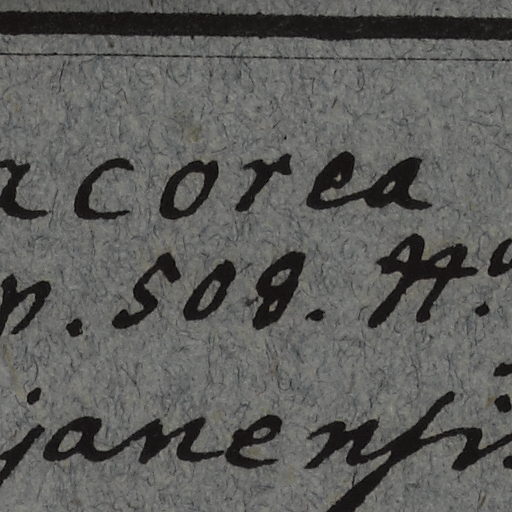 acorea
p. 508. H.
janensis